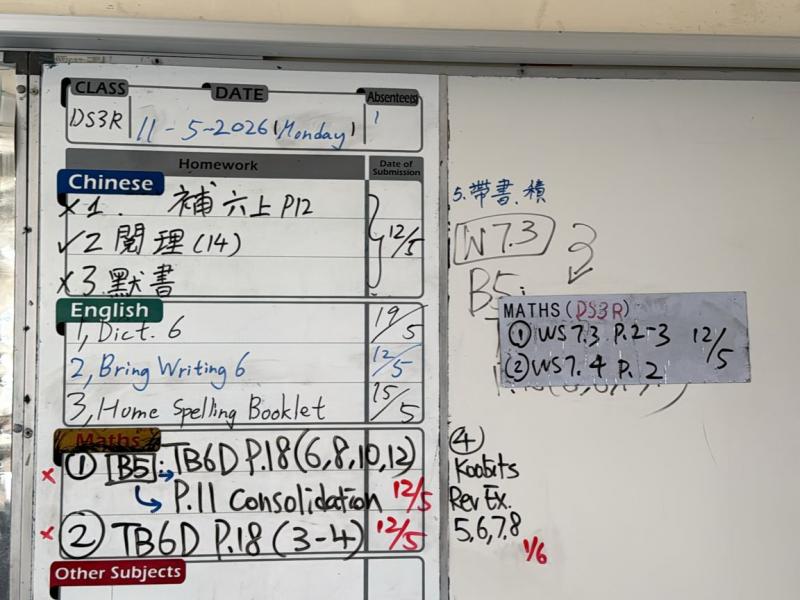 CLASS DATE Absentee(s)
DS3R 11-5-2026 (Monday) 1
Homework Date of Submission
Chinese
×1. 補六上 P12
✓2 閱理(14) 12/5
×3.默書
English
1, Dict. 6 19/5
2, Bring Writing 6 12/5
3, Home Spelling Booklet 15/5
Maths
× ① B5: → TB6D P.18(6,8,10,12)
↳ P.11 Consolidation 12/5
× ② TB6D P.18 (3-4) 12/5
Other Subjects
5.帶書.積
W7.3 3
B5:
MATHS (DS3R)
① WS7.3 P.2-3 12/5
② WS7.4 P.2
④
Koobits
Rev Ex.
5,6,7,8
1/6